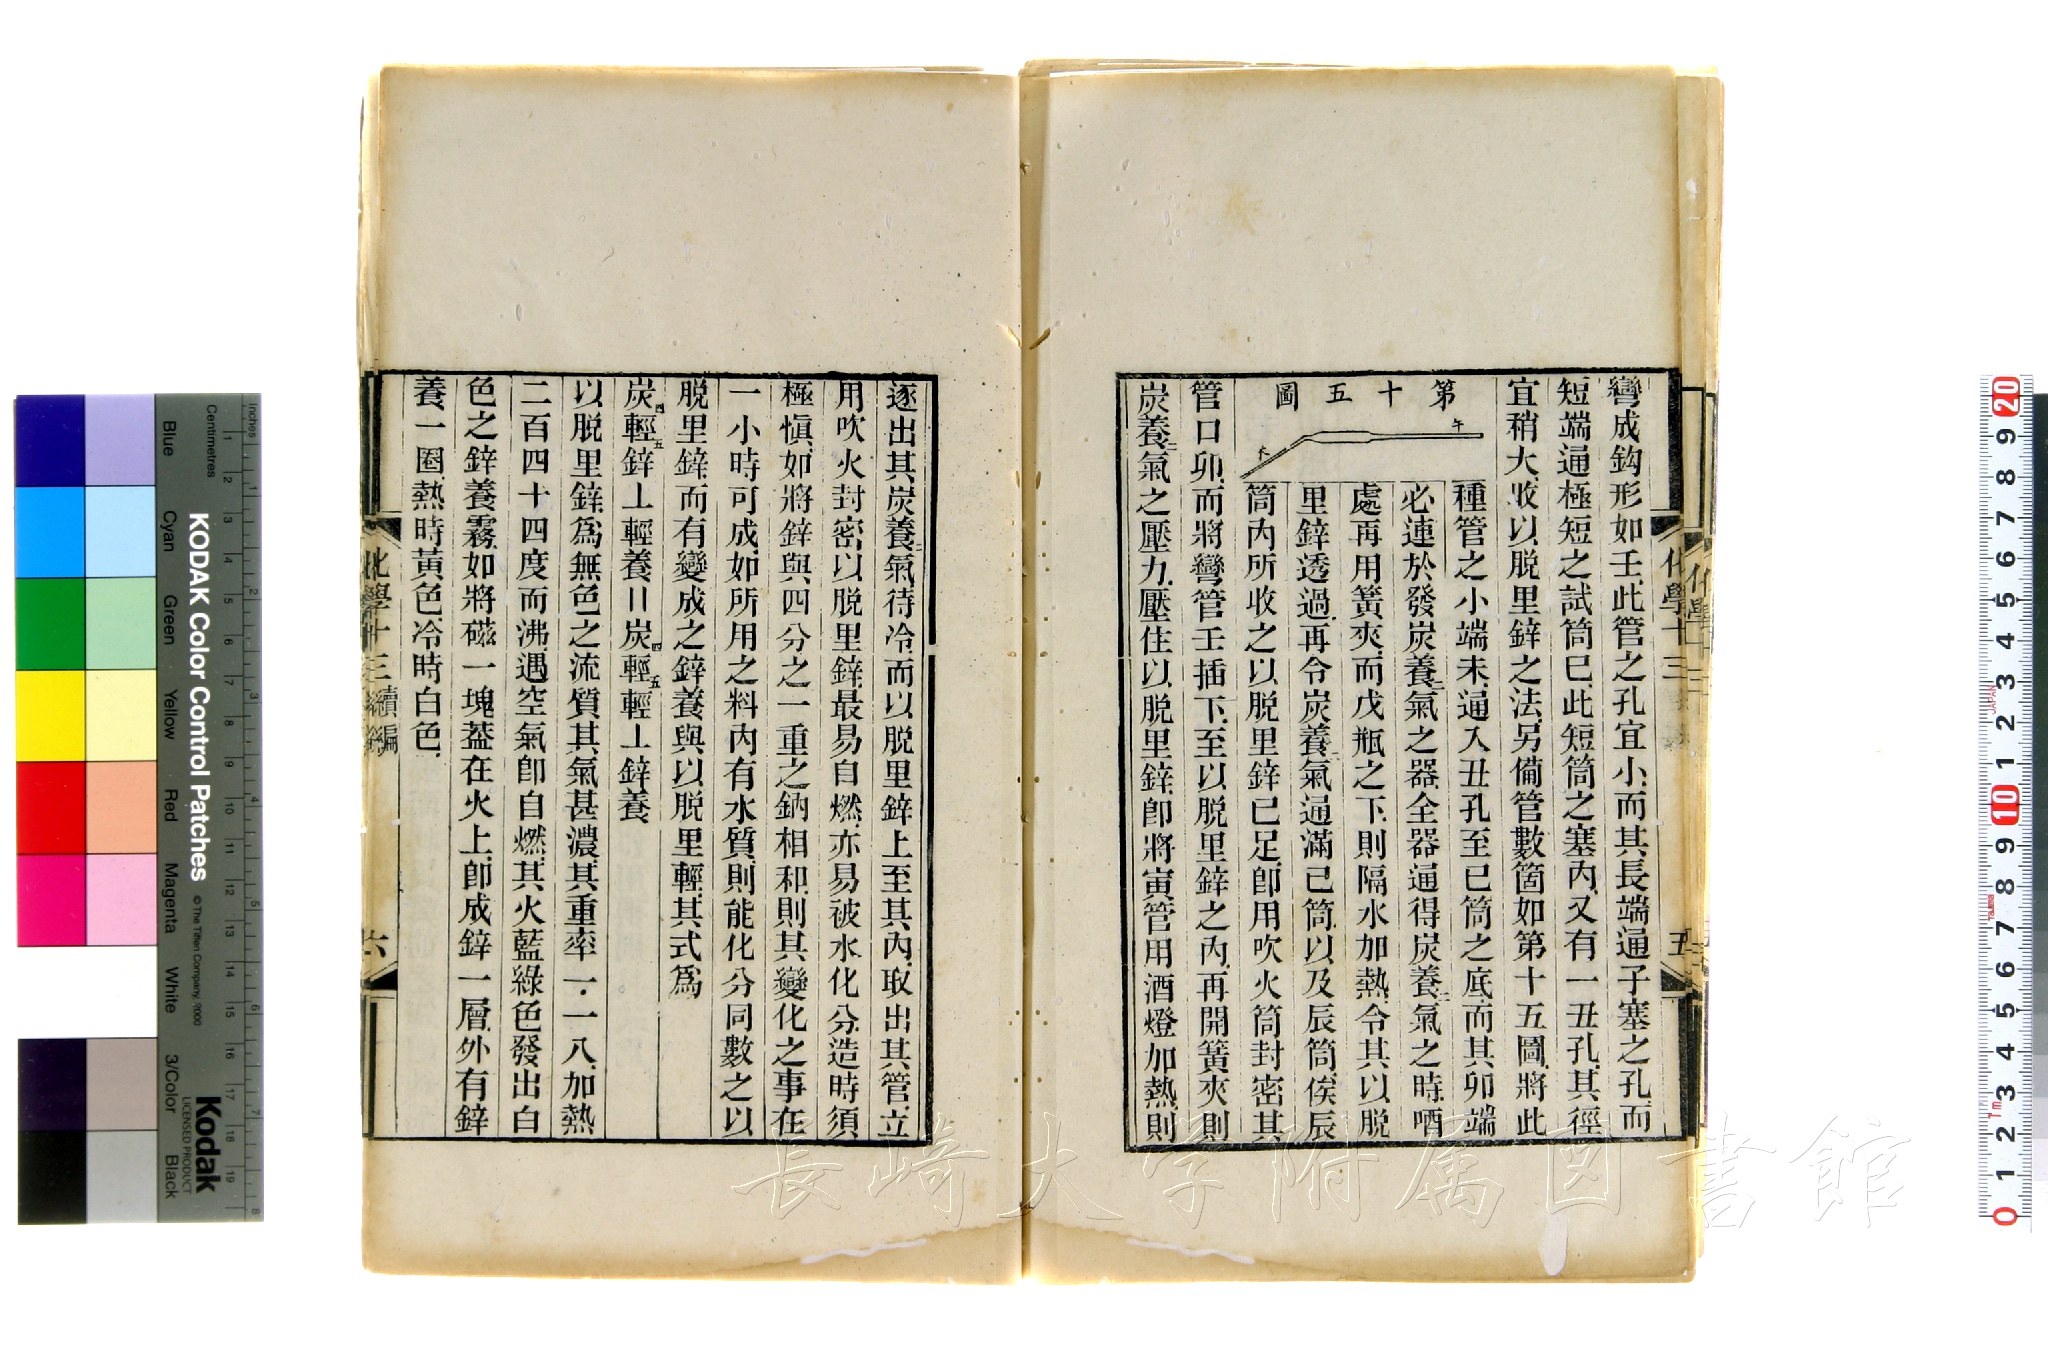 彎成鈎形如壬此管之孔宜小而其長端通子塞之孔而
短端通極短之試筒巳此短筒之塞內又有一丑孔其徑
宜稍大收以脫里鋅之法另備管數箇如第十五圖將此
第十五圖
午
種管之小端未通入丑孔至已筒之底而其卯端
必連於發炭養二氣之器全器通得炭養二氣之時唒
處再用簧夾而戊瓶之下則隔水加熱令其以脫
里鋅透過再令炭養二氣通滿已筒以及辰筒俟辰
筒內所收之以脫里鋅已足卽用吹火筒封密其
管口卯而將彎管壬插下至以脫里鋅之內再開簧夾則
炭養二氣之壓力壓住以脫里鋅卽將寅管用酒燈加熱則
化學十三
五
逐出其炭養二氣待冷而以脫里鋅上至其內取出其管立
用吹火封密以脫里鋅最易自燃亦易被水化分造時須
極愼如將鋅與四分之一重之鈉相和則其變化之事在
一小時可成如所用之料內有水質則能化分同數之以
脫里鋅而有變成之鋅養與以脫里輕其式爲
炭四輕五鋅⊥輕養〢炭四輕五輕⊥鋅養
以脫里鋅爲無色之流質其氣甚濃其重率一·一八加熱
二百四十四度而沸遇空氣卽自燃其火藍綠色發出白
色之鋅養霧如將磁一塊蓋在火上卽成鋅一層外有鋅
養一圈熱時黃色冷時白色
化學十三 續編
六
長崎大学附属図書館
KODAK Color Control Patches
© The Tiffen Company, 2000
Kodak
LICENSED PRODUCT
Blue Cyan Green Yellow Red Magenta White 3/Color Black
Centimetres
Inches
JAPAN